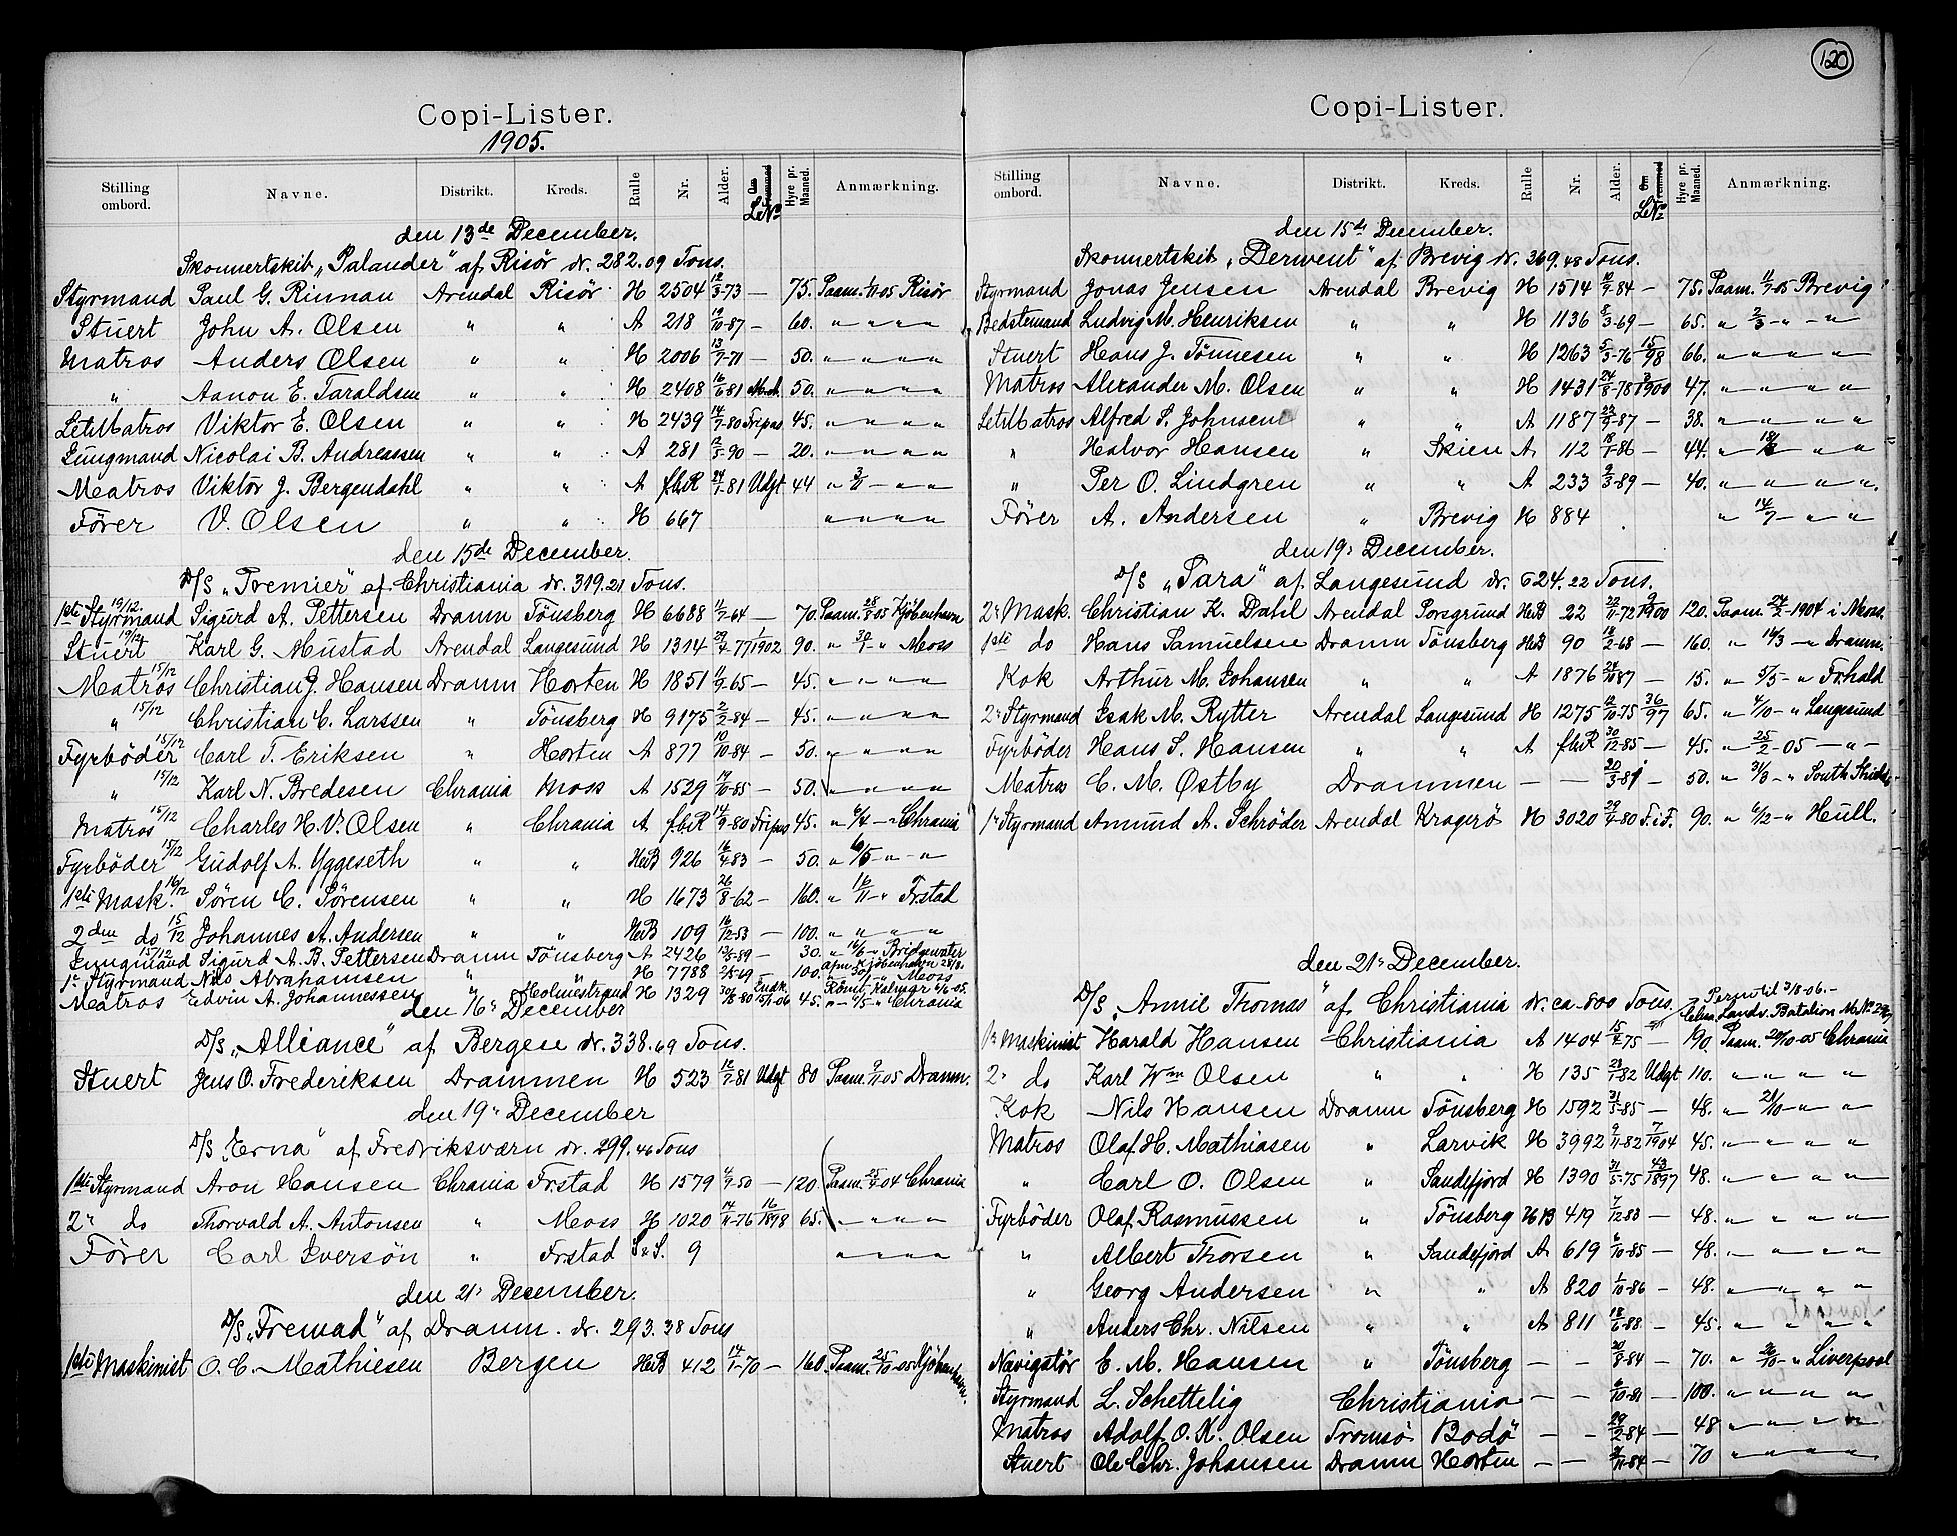 120
Copi-Lister.
1905.
Stilling ombord. Navne. Distrikt. Kreds. Rulle Nr. Alder. Om Fremmed Le No Hyre pr. Maaned. Anmærkning.
den 13de December.
Skonnertskib „Palander" af Risör dr. 282.09 Tons.
Styrmand Paul G. Rinnan Arendal Risör H 2504 12/3-73 — 75. Paam. 1905 Risör
Stuert John A. Olsen " " A 218 19/10-87 — 60. " " " "
Matros Anders Olsen " " H 2006 13/7-71 — 50. " " " "
" Aanon E. Taraldsen " " H 2408 16/6-81 50. " " " "
LetMatros Viktor E. Olsen " " H 2439 14/7-80 Fripas 45. " " " "
Jungmand Nicolai B. Andreassen " " A 281 12/5-90 — 20. " " " "
Matros Viktor J. Bergendahl " " A f.b.R 24/1-81 Udgt 44 " 3/11 — " "
Förer V. Olsen " " H 667 " " " "
den 15de December.
D/S „Premier" af Christiania dr. 319.21 Tons.
1ste Styrmand 19/12. Sigurd A. Pettersen Dramn Tönsberg H 6688 11/7-64 — 70. Paam. 28/8 05 Kjöbenhavn
Stuert 19/12 Karl G. Mustad Arendal Langesund H 1314 29/4-77 1/1902 90. " 30/7 " Moss
Matros 15/12 Christian J. Hansen Dramn Horten H 1851 11/9-65 — 45. " " " "
" 15/12 Christian C. Larssen " Tönsberg H 9175 2/2-84 — 45. " " " "
Fyrböder 15/12 Carl T. Eriksen " Horten A 877 10/10-84 — 50. " " " "
" 15/12 Karl N. Bredesen Chrania Moss A 1529 19/10-85 — 50. " " " "
Matros 15/12 Charles H. V. Olsen " Chrania A f.b.R 14/9-80 Fripas 45. " 6/4 - " Chrania
Fyrböder 15/12 Gudolf A. Yggeseth " " HeB 926 16/4-83 — 50. " 6/5 - " - "
1ste Mask. 16/12 Sören C. Sörensen " " H 1673 26/8-62 — 160. " 16/11 - " Frstad
2den do 15/12 Johannes A. Andersen " " HeB 109 16/12-53 — 100. " " " "
Jungmand 15/12 Sigurd A. B. Pettersen Dramn Tönsberg A 2426 13/5-89 — 30. " 16/6 - " Bridgewater
1ste Styrmand Nils Abrahamsen " " H 7788 2/5-69 — 100. Moss
Matros Edvin A. Johannessen " Holmestrand H 1329 30/8-80 15/1-06 45. " - 4/5 - " Chrania
den 16de December
D/S „Alliance" af Bergen dr. 338.69 Tons.
Stuert Jens O. Frederiksen Drammen H 523 12/7-81 Udgt 80 Paam. 9/11 05 Dramn.
den 19de December
D/S „Erna" af Fredriksværn dr. 299.46 Tons
1ste Styrmand Aron Hansen Chrania Frstad H 1579 4/9-50 — 120 Paam. 25/4-04 Chrania
2den do Thorvald A. Antonsen " Moss H 1020 14/11-76 16/1898 65. " " " "
Förer Carl Iversön " Frstad S&S. 9 " " " "
den 21de December.
D/S „Fremad" af Dramn. dr. 293.38 Tons
1ste Maskinist O. C. Mathiesen Bergen HeB 412 14/1-70 — 160. Paam. 25/10-05 Kjöbenhavn.
Copi-Lister.
Stilling ombord. Navne. Distrikt. Kreds. Rulle Nr. Alder. Om Fremmed Le No Hyre pr. Maaned. Anmærkning.
den 15de December.
Skonnertskib „Derwent" af Brevig dr. 369.48 Tons.
Styrmand Jonas Jensen Arendal Brevig H 1514 10/9-84 — 75. Paam. 11/7-05 Brevig
Bedstemand Ludvig M. Henriksen " " H 1136 8/3-69 — 65. " 2/3 - " - "
Stuert Hans J. Tönnesen " " H 1263 5/3-76 15/98 66. " " " "
Matros Alexander M. Olsen " " H 1431 24/8-78 3/1900 47. " " " "
LetMatros Alfred S. Johnsen " " A 1187 23/9-87 — 38. " " " "
" Halvor Hansen " Skien A 112 18/1-86 — 44. " " "
" Per O. Lindgren " " A 233 9/3-89 — 40. " " " "
Förer A. Andersen " Brevig H 884 " 14/7 - " "
den 19de December.
D/S „Para" af Langesund dr. 624.22 Tons.
2den Mask. Christian K. Dahl Arendal Porsgrund HeB 22 22/11-72 9/1900 120. Paam. 24/2-1904 i Moss.
1ste do Hans Samuelsen Dramn Tönsberg HeB 90 18/2-68 — 160. " 16/3 - " Dramn.
Kok Arthur M. Johansen " " A 1876 24/11-87 — 15. " 5/5 - " Frhald
2den Styrmand Isak M. Rytter Arendal Langesund H 1275 12/10-75 36/97 65. " 4/10 - " Langesund
Fyrböder Hans S. Hansen " " A f.b.R 30/12-85 — 45. " 25/2-05 - " -
Matros C. M. Østby Drammen — — 20/3-81 — 50. " 31/3 - " South Shields
1ste Styrmand Amund A. Schröder Arendal Kragerö H 3020 29/4-80 F.i.F. 90. " 6/12 - " Hull.
den 21de December.
D/S „Annie Thomas" af Christiania dr. ca. 800 Tons. Perm til 3/8-06.-
Landv. Batalion
1ste Maskinist Harald Hansen Christiania A 1404 15/2-75 — 190. Paam. 20/10-05 Chrania
2den do Karl Wm Olsen " " H 135 23/1-82 Udgt 110. " " " "
Kok Nils Hansen Dramn Tönsberg H 1592 31/5-85 — 48. " 21/10 - " "
Matros Olaf H. Mathiasen " Larvik H 3992 9/11-82 7/1904 45. " " " "
" Carl O. Olsen " Sandefjord H 1390 31/5-75 43/1897 48. " " " "
Fyrböder Olaf Rasmussen " Tönsberg HB 419 7/12-83 — 48. " " " "
" Albert Thorsen " Sandefjord A 619 6/10-85 — 48. " " " "
" Georg Andersen " " A 820 1/10-86 — 48. " " " "
" Anders Chr. Nilsen " " A 811 18/6-88 — 45. " " " "
Navigatör C. M. Hansen " Tönsberg — — 20/8-84 — 70. " 26/10 - " Liverpool
Styrmand L. Schettelig Christiania — — 6/10-81 — 100. " " " "
Matros Adolf O. K. Olsen Tromsö Bodö — — 29/2-84 — 48 " " " "
Stuert Ole Chr. Johansen Dramn Horten — — 2/11-84 — 70 " " " "